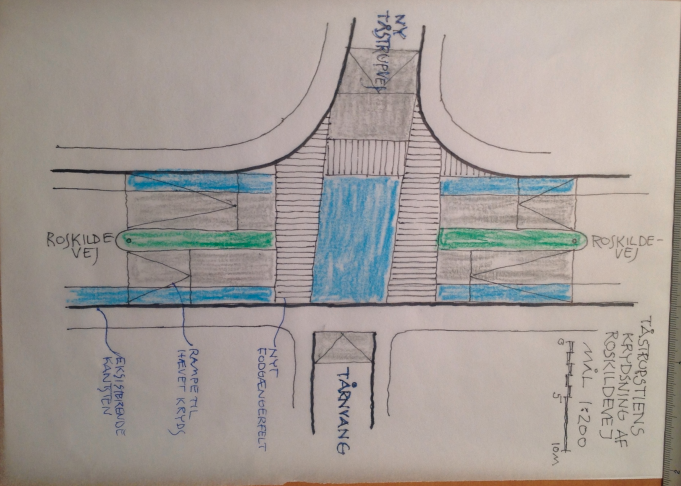 TÅSTRUPSTIENS
KRYDSNING AF
ROSKILDEVEJ
MÅL 1:200
0 5 10M
NY
TÅSTRUPVEJ
ROSKILDE-
VEJ
ROSKILDE-
VEJ
TÅRNVANG
NYT
FODGÆNGERFELT
RAMPE TIL
HÆVET KRYDS
EKSISTERENDE
KANTSTEN